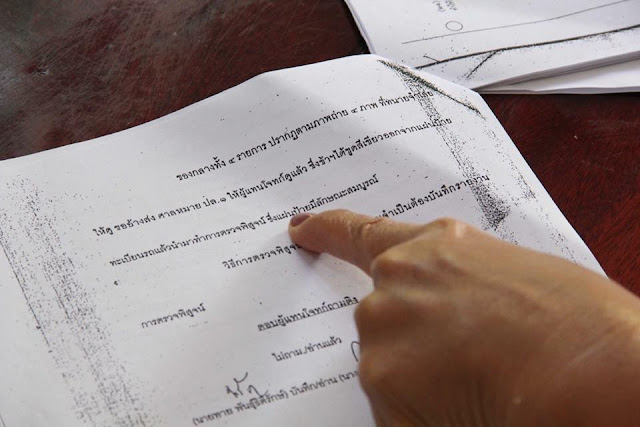 ของกลางทั้ง ๔ รายการ ปรากฏตามภาพถ่าย ๔ ภาพ ที่ทนายจำเลย
ให้ดู รอช้างส่ง ศาลหมาย ปล.๑ ให้ผู้แทนโจทก์ดูแล้ว ซึ่งข้าฯได้ขูดสีเขียวออกจากแผ่นป้าย
ทะเบียนรถแล้วนำมาทำการตรวจพิสูจน์ ซึ่งแผ่นป้ายมีลักษณะสมบูรณ์
วิธีการตรวจพิสูจน์ จำเป็นต้องบันทึกรายงาน
การตรวจพิสูจน์
ตอบผู้แทนโจทก์ถามติง
ไม่ถาม./อ่านแล้ว
(นายทาย บันทึก/อ่าน (นาง